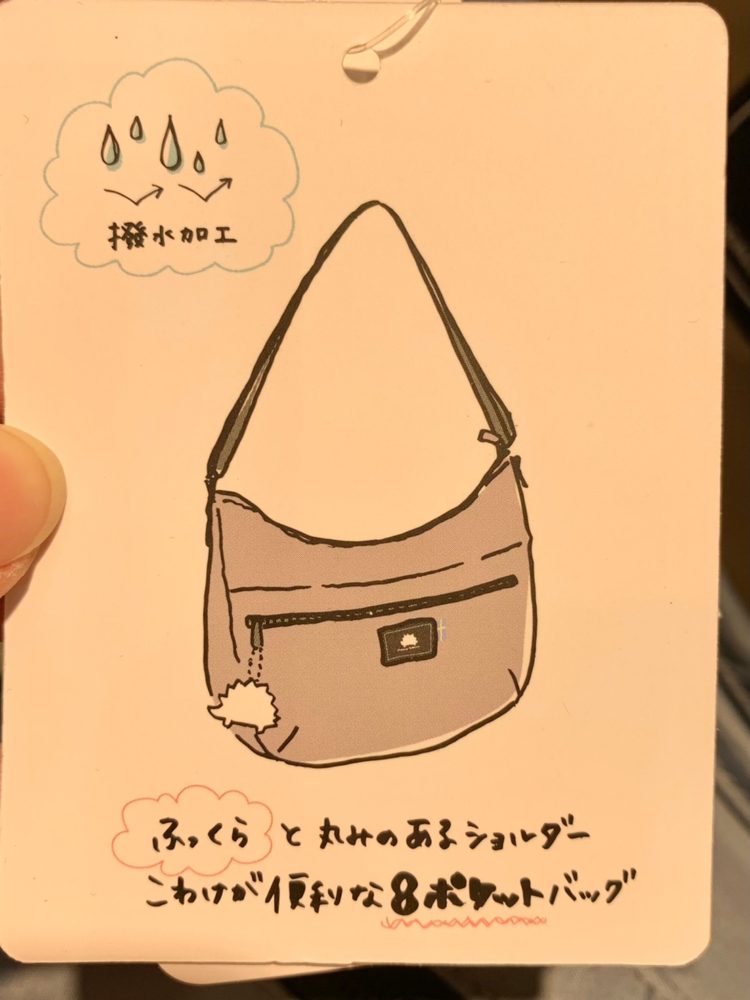 撥水加工
ふっくらと丸みのあるショルダー
こわけが便利な8ポケットバッグ